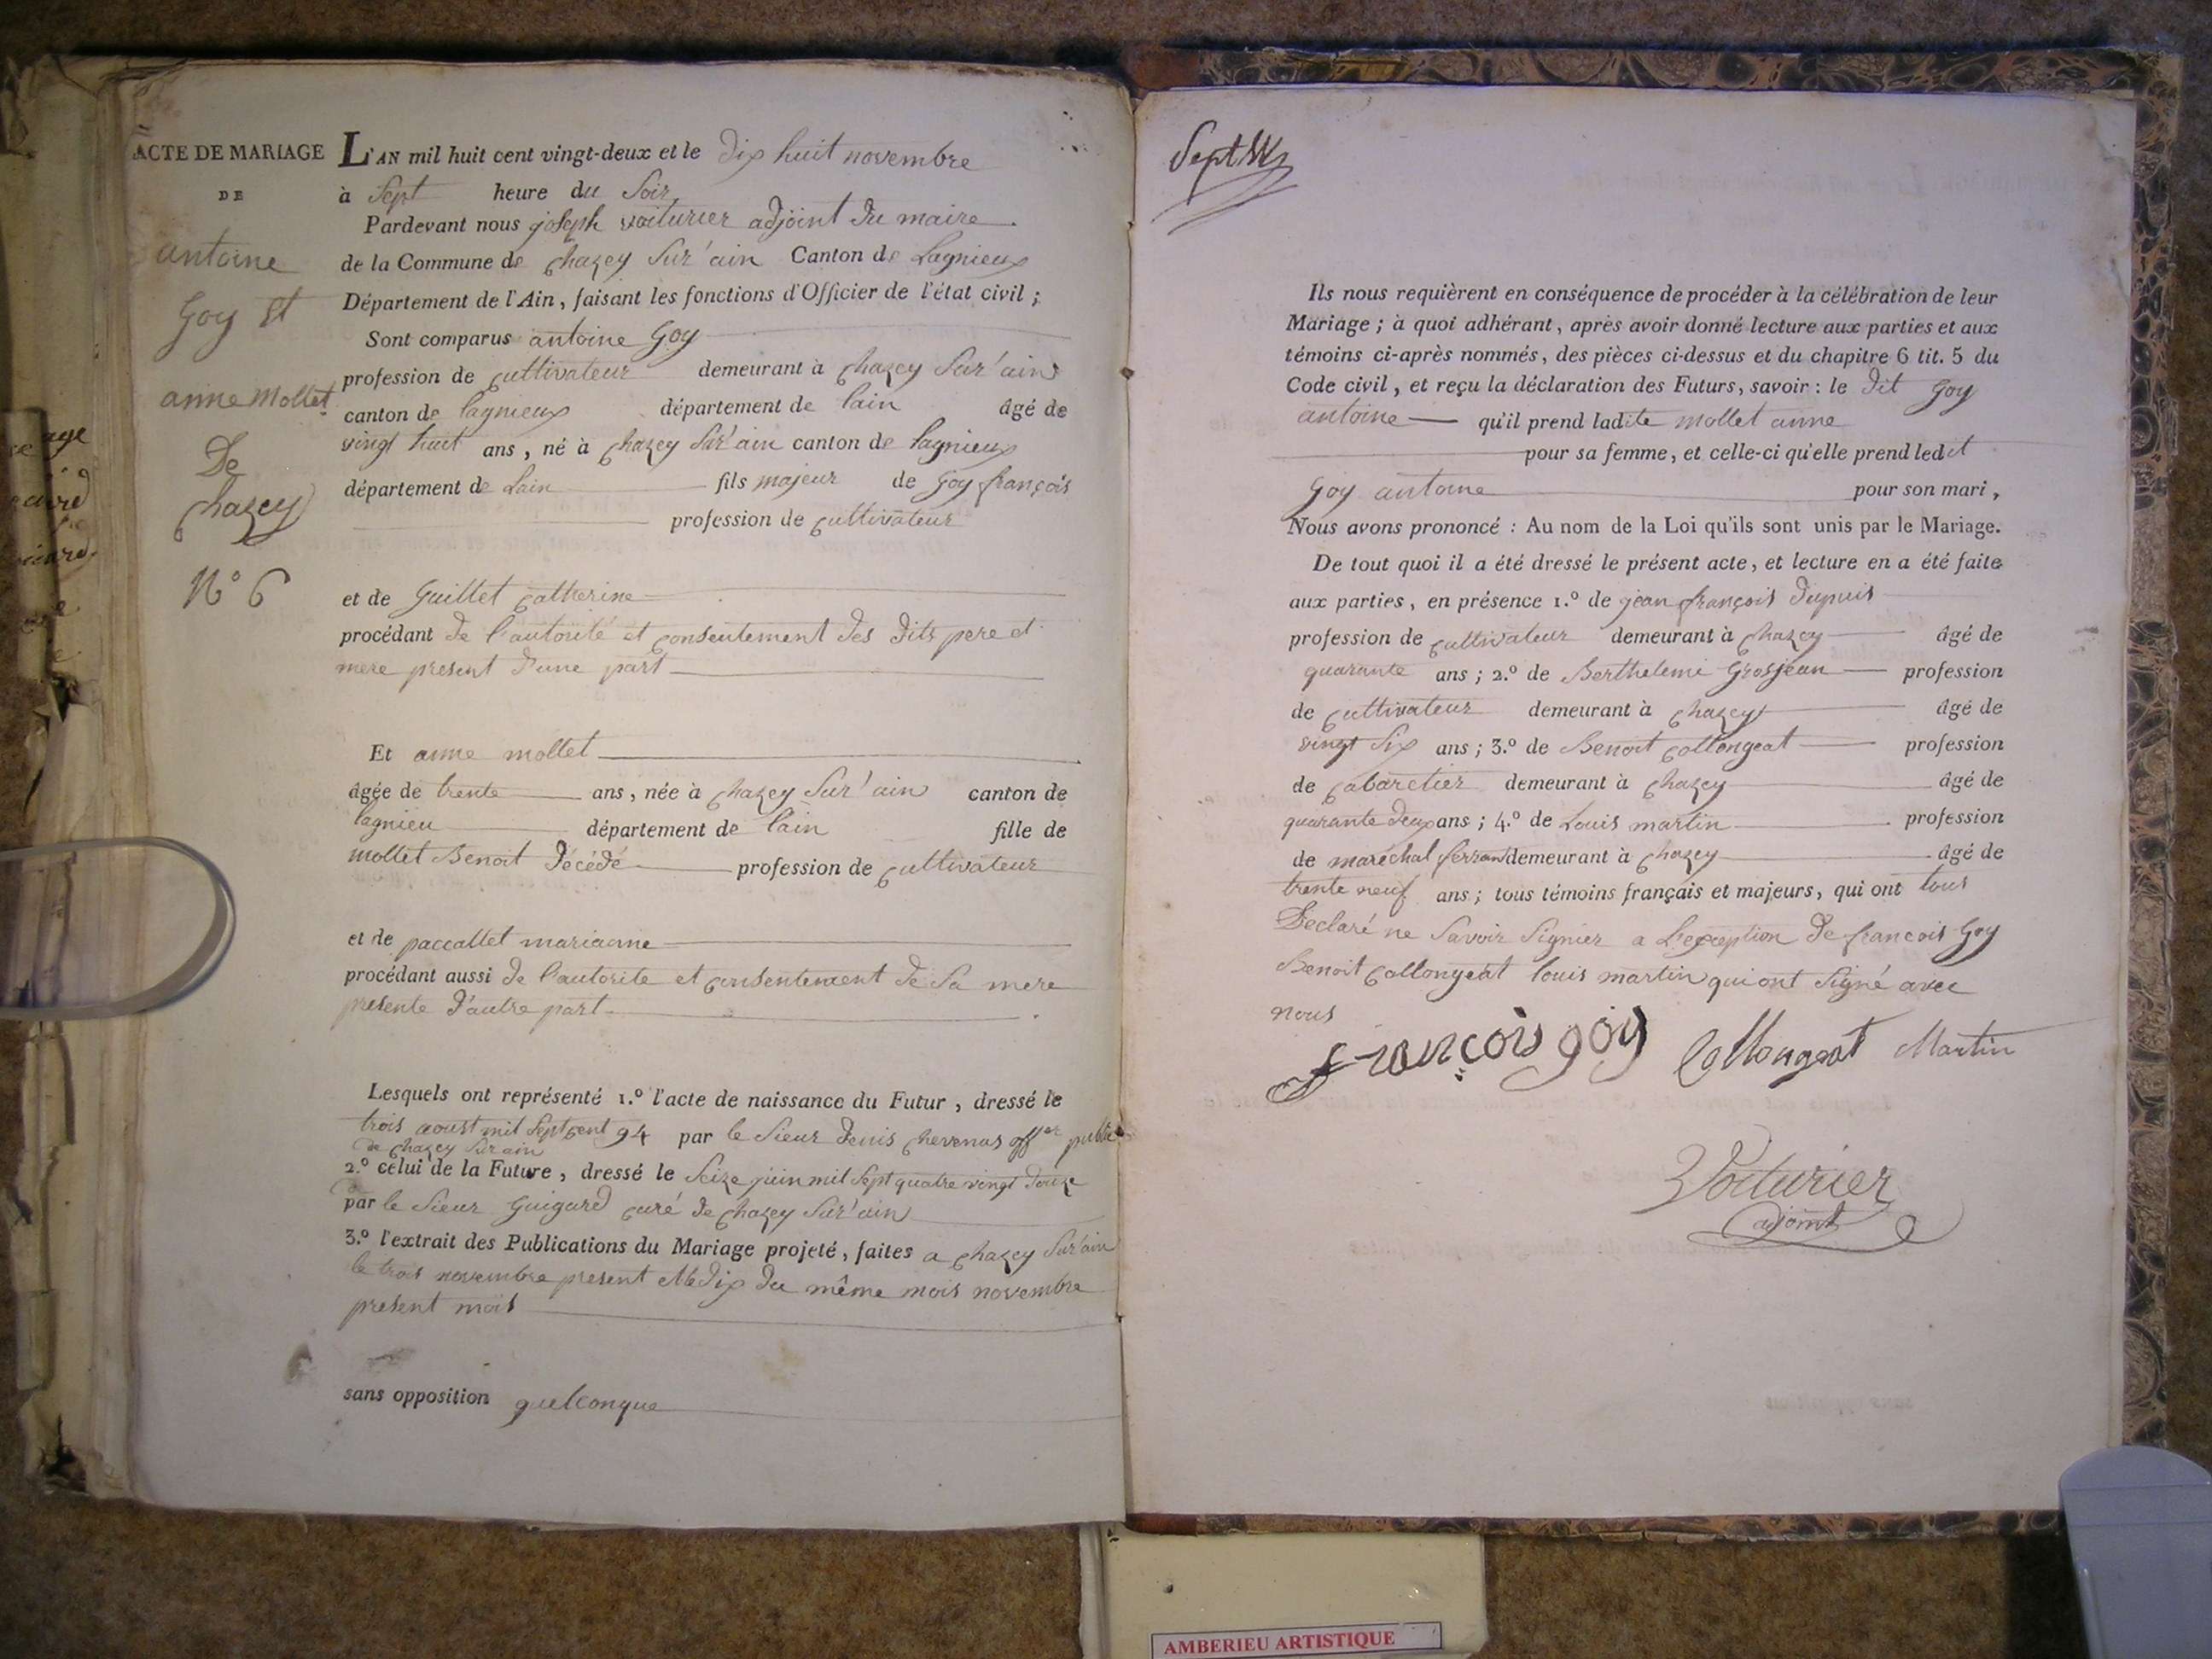 ACTE DE MARIAGE
DE
antoine
Goy et
anne Mollet
De
Chazey
N° 6
L'AN mil huit cent vingt-deux et le dix huit novembre
à Sept heure du Soir
Pardevant nous joseph voiturier adjoint du maire
de la Commune de chazey Sur'ain Canton de Lagnieux
Département de l'Ain, faisant les fonctions d'Officier de l'état civil ;
Sont comparus antoine Goy
profession de cultivateur demeurant à chazey Sur'ain
canton de lagnieux département de lain âgé de
vingt huit ans, né à chazey Sur'ain canton de lagnieux
département de Lain fils majeur de Goy françois
profession de cultivateur
et de Guillet catherine
procédant de l'autorité et consentement des dits pere et
mere present d'une part
Et anne mollet
âgée de trente ans, née à chazey Sur'ain canton de
lagnieu département de lain fille de
mollet Benoit décédé profession de cultivateur
et de paccallet marianne
procédant aussi de l'autorite et consentement de Sa mere
presente d'autre part
Lesquels ont représenté 1.° l'acte de naissance du Futur, dressé le
trois aoust mil Sept cent 94 par le Sieur denis chevenas offer public
de chazey Sur ain
2.° celui de la Future, dressé le Seize juin mil Sept quatre vingt douze
par le Sieur Guigard curé de chazey Sur'ain
3.° l'extrait des Publications du Mariage projeté, faites a chazey Sur'ain
le trois novembre present et le dix du même mois novembre
present mois
sans opposition quelconque
Sept
Ils nous requièrent en conséquence de procéder à la célébration de leur
Mariage ; à quoi adhérant, après avoir donné lecture aux parties et aux
témoins ci-après nommés, des pièces ci-dessus et du chapitre 6 tit. 5 du
Code civil, et reçu la déclaration des Futurs, savoir : le dit Goy
antoine qu'il prend ladite mollet anne
pour sa femme, et celle-ci qu'elle prend ledit
Goy antoine pour son mari,
Nous avons prononcé : Au nom de la Loi qu'ils sont unis par le Mariage.
De tout quoi il a été dressé le présent acte, et lecture en a été faite
aux parties, en présence 1.° de jean françois dupuis
profession de cultivateur demeurant à chazey âgé de
quarante ans ; 2.° de Berthelemi Grosjean profession
de cultivateur demeurant à chazey âgé de
vingt Six ans ; 3.° de Benoit collongeat profession
de cabaretier demeurant à chazey âgé de
quarante deux ans ; 4.° de Louis martin profession
de maréchal ferrand demeurant à chazey âgé de
trente neuf ans ; tous témoins français et majeurs, qui ont tous
Declaré ne Savoir Signier a L'exception de francois Goy
Benoit collongeat louis martin qui ont Signé avec
nous
françois goy Collongeat Martin
Voiturier
adjoint
AMBERIEU ARTISTIQUE